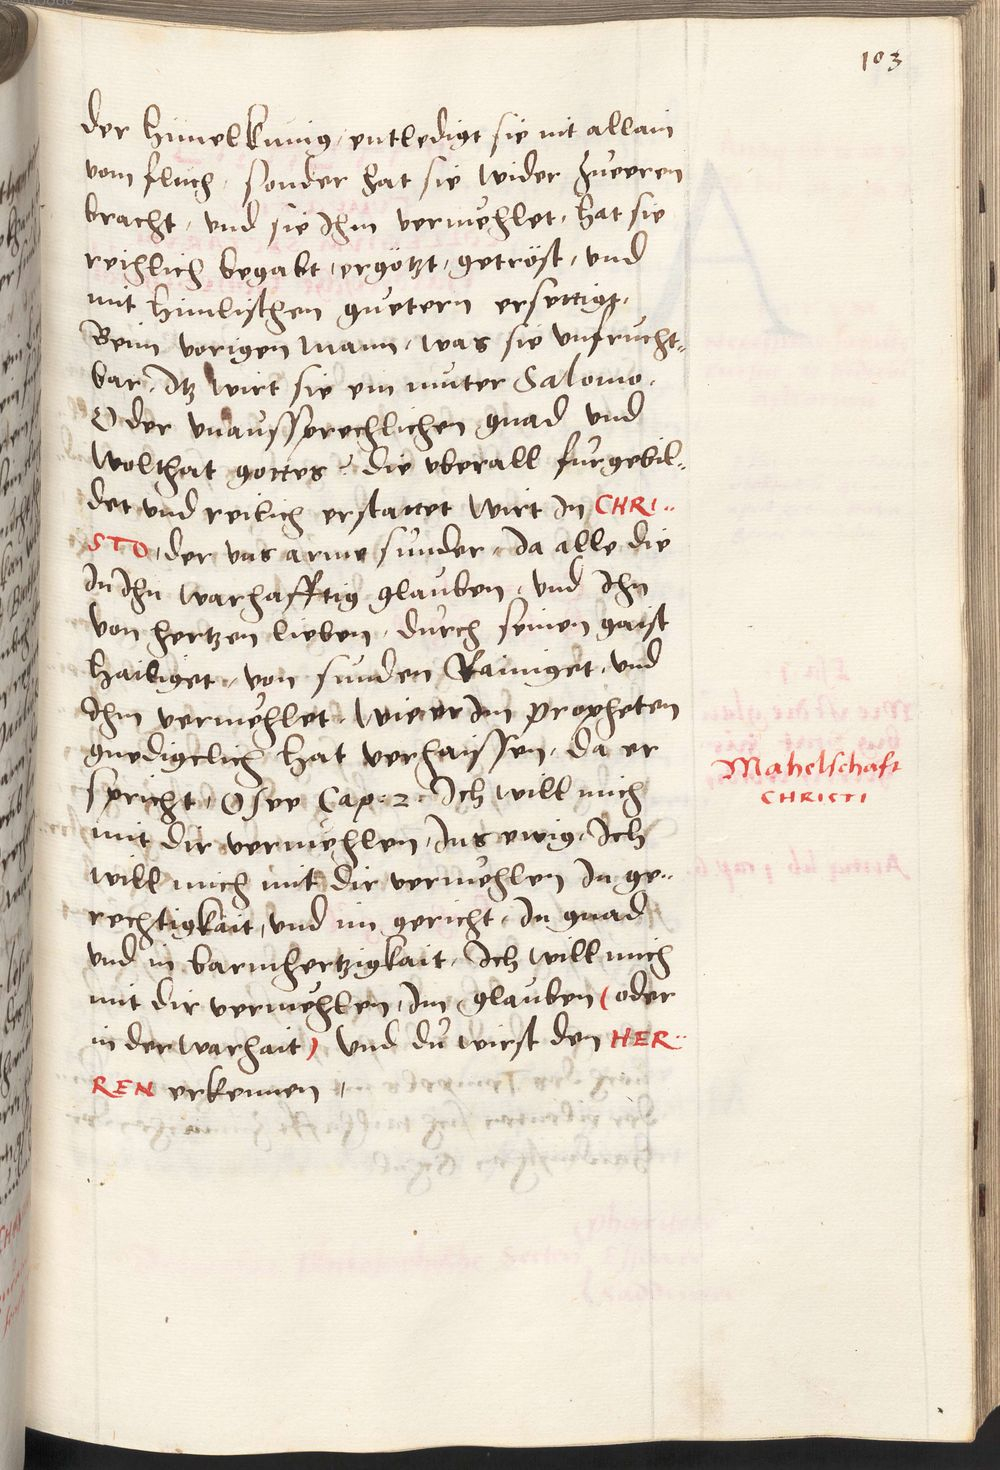 103
der himelkunig, entledigt sie nit allain
vom fluch, sonder hat sie wider zu eeren
bracht, vnd sie Ihm vermehlet, hat sie
reichlich begabt, ergötzt, getröst, vnd
mit himlischen guetern ersettigt,
Beim vorigen Mann, was sie vnfrucht-
bar, Itz wirt sie ein muter Salomo.
O der vnaussprechlichen gnad vnd
wolthat gottes? die vberall furgebil-
det vnd reilich erstattet wirt In CHRI-
STO, der vns arme sunder, Ia alle die
In Ihn warhafftig glauben, vnd Ihn
von hertzen lieben, durch seinen gaist
hailiget, von sunden Rainiget, vnd
Ihm vermehlet, wie er Im propheten
gnediglich hat verhaissen, da er
spricht, Osee Cap: 2. Ich will mich
mit dir vermehlen, Ins ewig, Ich
will mich mit dir vermehlen In ge-
rechtigkait, vnd im gericht, In gnad
vnd in barmhertzigkait, Ich will mich
mit dir vermehlen, Im glauben (oder
in der warhait) vnd du wirst den HER-
REN erkennen,
Mahelschaft
CHRISTI